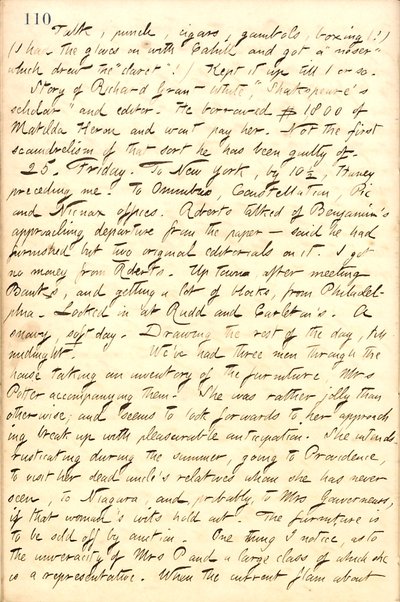 110
Talk, punch, cigars, gambols, boxing (!)
(I had the gloves on with Cahill and got a "noser"
which drew the "claret"!) Kept it up till 1 or so.
Story of Richard Grant White, "Shakspeare's
scholar" and editor. He borrowed $1800 of
Matilda Heron and wont pay her. Not the first
scoundrelism of that sort he has been guilty of.
25. Friday. To New York, by 10½, Haney
preceding me. To Omnibus, Constellation, Pic
and Nicnax offices. Roberts talked of Benjamin's
approaching departure from the paper — said he had
furnished but two original editorials on it. I got
no money from Roberts. Up town, after meeting
Banks, and getting a lot of blocks, from Philadel-
phia. Looked in at Rudd and Carleton's. A
snowy, soft day. Drawing the rest of the day, till
midnight. We've had three men through the
house taking an inventory of the furniture, Mrs
Potter accompanying them. She was rather jolly than
otherwise, and seems to look forwards to her approach
ing break up with pleasurable anticipation. She intends
rusticating during the summer, going to Providence,
to visit her dead uncle's relatives whom she has never
seen, to Niagara, and, probably, to Mrs Gouverneurs,
if that woman's wits hold out. The furniture is
to be sold off by auction. One thing I notice, as to
the unveracity of Mrs P and a large class of which she
is a representative. When the current flam about